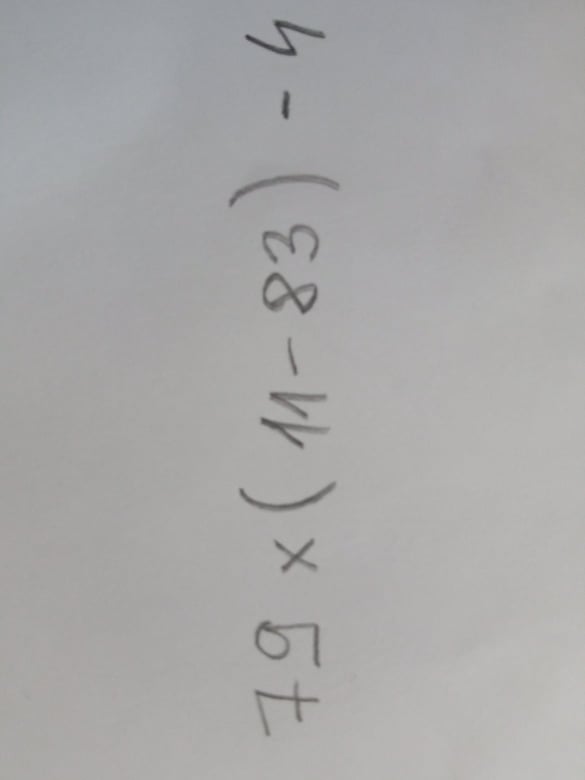 79 x ( 11 - 83 ) - 4